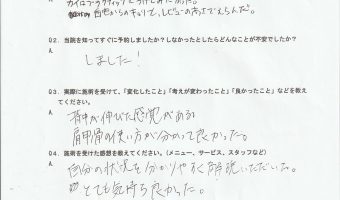 カイロプラクティックと
自宅からのキョリで、レビューの高さでえらんだ。
Q2. 当院を知ってすぐに予約しましたか?しなかったとしたらどんなことが不安でしたか?
A
しました!
Q3. 実際に施術を受けて、「変化したこと」「考えが変わったこと」「良かったこと」などを教え
てください。
A
背中が伸びた感覚がある
肩甲骨の使い方が分かって良かった。
Q4. 施術を受けた感想を教えてください。(メニュー、サービス、スタッフなど)
A
自分の状況を分かりやすく解説いただいた。
とても気持ち良かった。